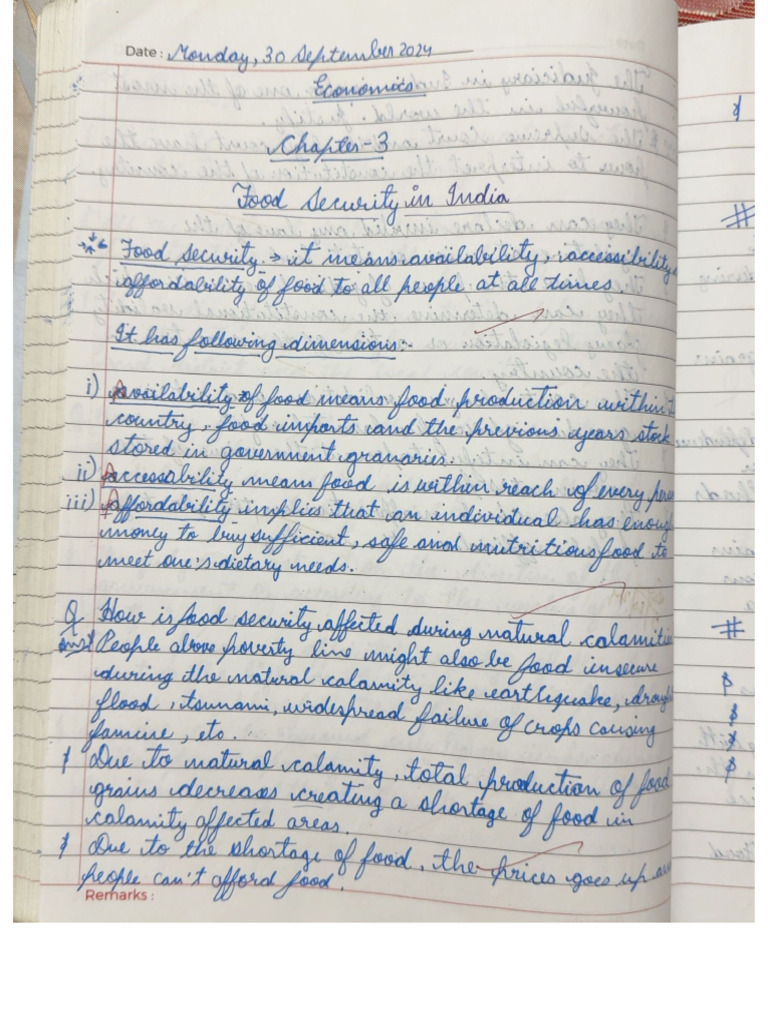 Date : Monday, 30 September 2024
Economics
Chapter-3
Food Security in India
Food security → it means availability, accessibility &
affordability of food to all people at all times.
It has following dimensions:-
i) Availability of food means food production within
country, food imports and the previous years stock
stored in government granaries.
ii) Accessability means food is within reach of every
iii) Affordability implies that an individual has enough
money to buy sufficient, safe and nutritious food to
meet one's dietary needs.
Q How is food security affected during natural calamities
Ans People above poverty line might also be food insecure
during the natural calamity like earthquake, drought
flood, tsunami, widespread failure of crops causing
famine, etc.
Due to natural calamity, total production of food
grains decreases creating a shortage of food in
calamity affected areas.
Due to the shortage of food, the prices goes up
people can't afford food.
Remarks :